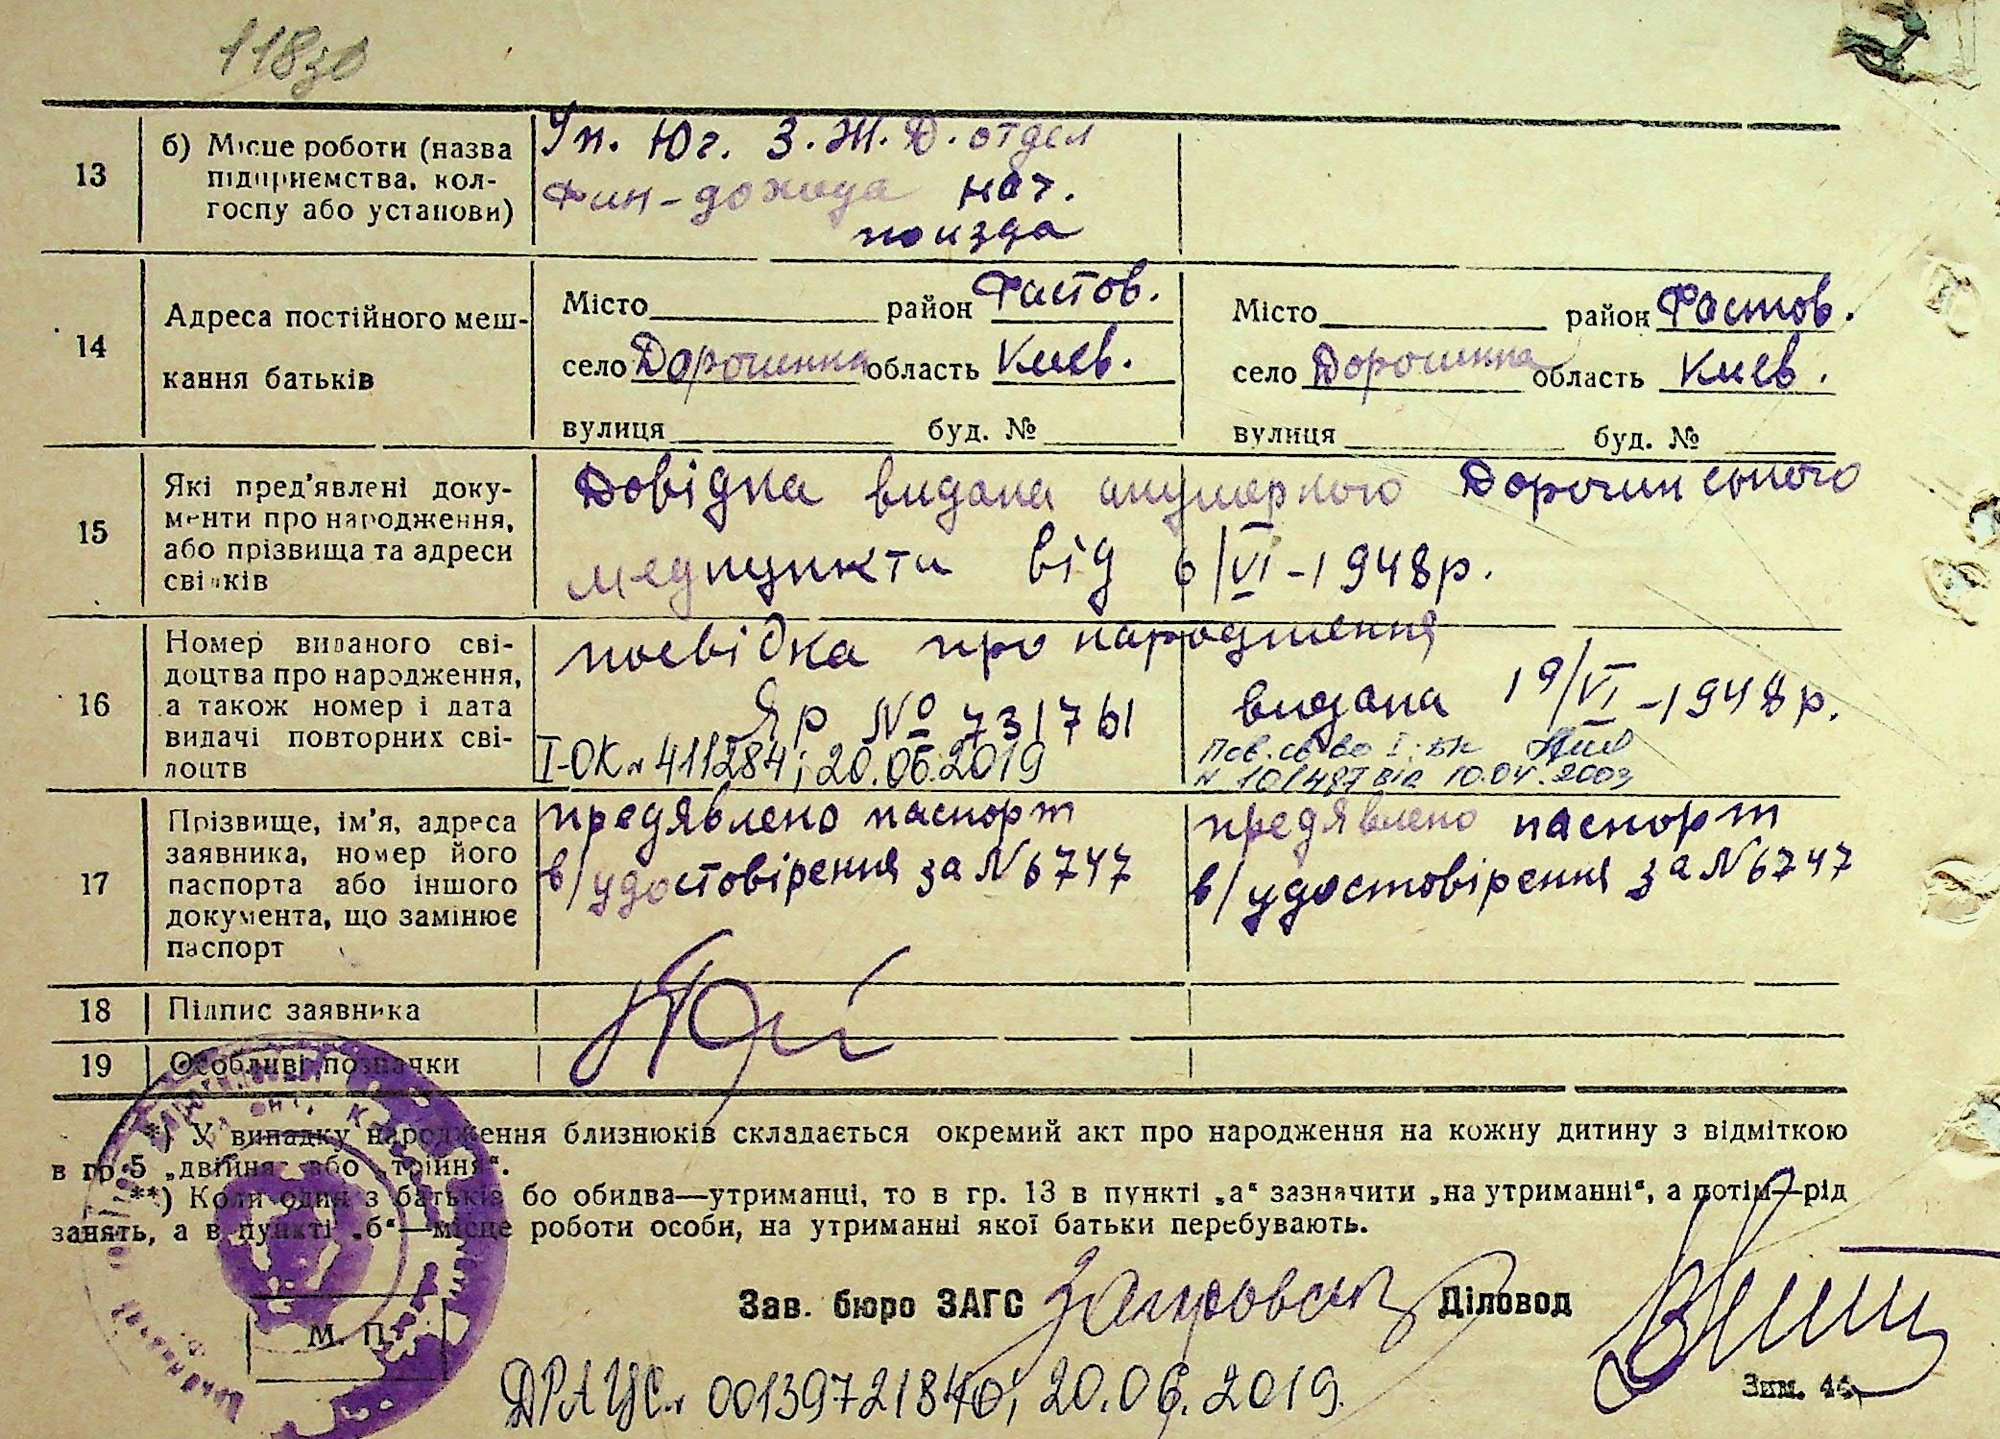 118зв
13
б) Місце роботи (назва
підприємства, кол-
госпу або установи)
Уп. Юг. З. Ж. Д. отдел
Фин-дохода нач.
поизда
14
Адреса постійного меш-
кання батьків
Місто район Фастов.
село Дорошинка область Киев.
вулиця буд. №
Місто район Фастов.
село Дорошинка область Киев.
вулиця буд. №
15
Які пред'явлені доку-
менти про народження,
або прізвища та адреси
свідків
Довідка видана акушеркою Дорошинського
медпункти від 6/VI-1948р.
16
Номер виданого сві-
доцтва про народження,
а також номер і дата
видачі повторних сві-
доцтв
посвідка про народження
ЯР № 731761 видана 19/VI-1948р.
I-ОК № 411284; 20.06.2019
Пов. св-во I-БК
N 101487 від 10.04.2003
17
Прізвище, ім'я, адреса
заявника, номер його
паспорта або іншого
документа, що замінює
паспорт
предявлено паспорт
в/удостовірення за N 6747
предявлено паспорт
в/удостовірення за N 6747
18
Підпис заявника
19
Особливі позначки
*) У випадку народження близнюків складається окремий акт про народження на кожну дитину з відміткою
в гр 5 „двійня" або „трійня".
**) Коли один з батьків бо обидва—утриманці, то в гр. 13 в пункті „а" зазначити „на утриманні", а потім—рід
занять, а в пункті „б"—місце роботи особи, на утриманні якої батьки перебувають.
Зав. бюро ЗАГС Діловод
М. П.
ДРАЦС № 00139721840; 20.06.2019.
Зим. 44